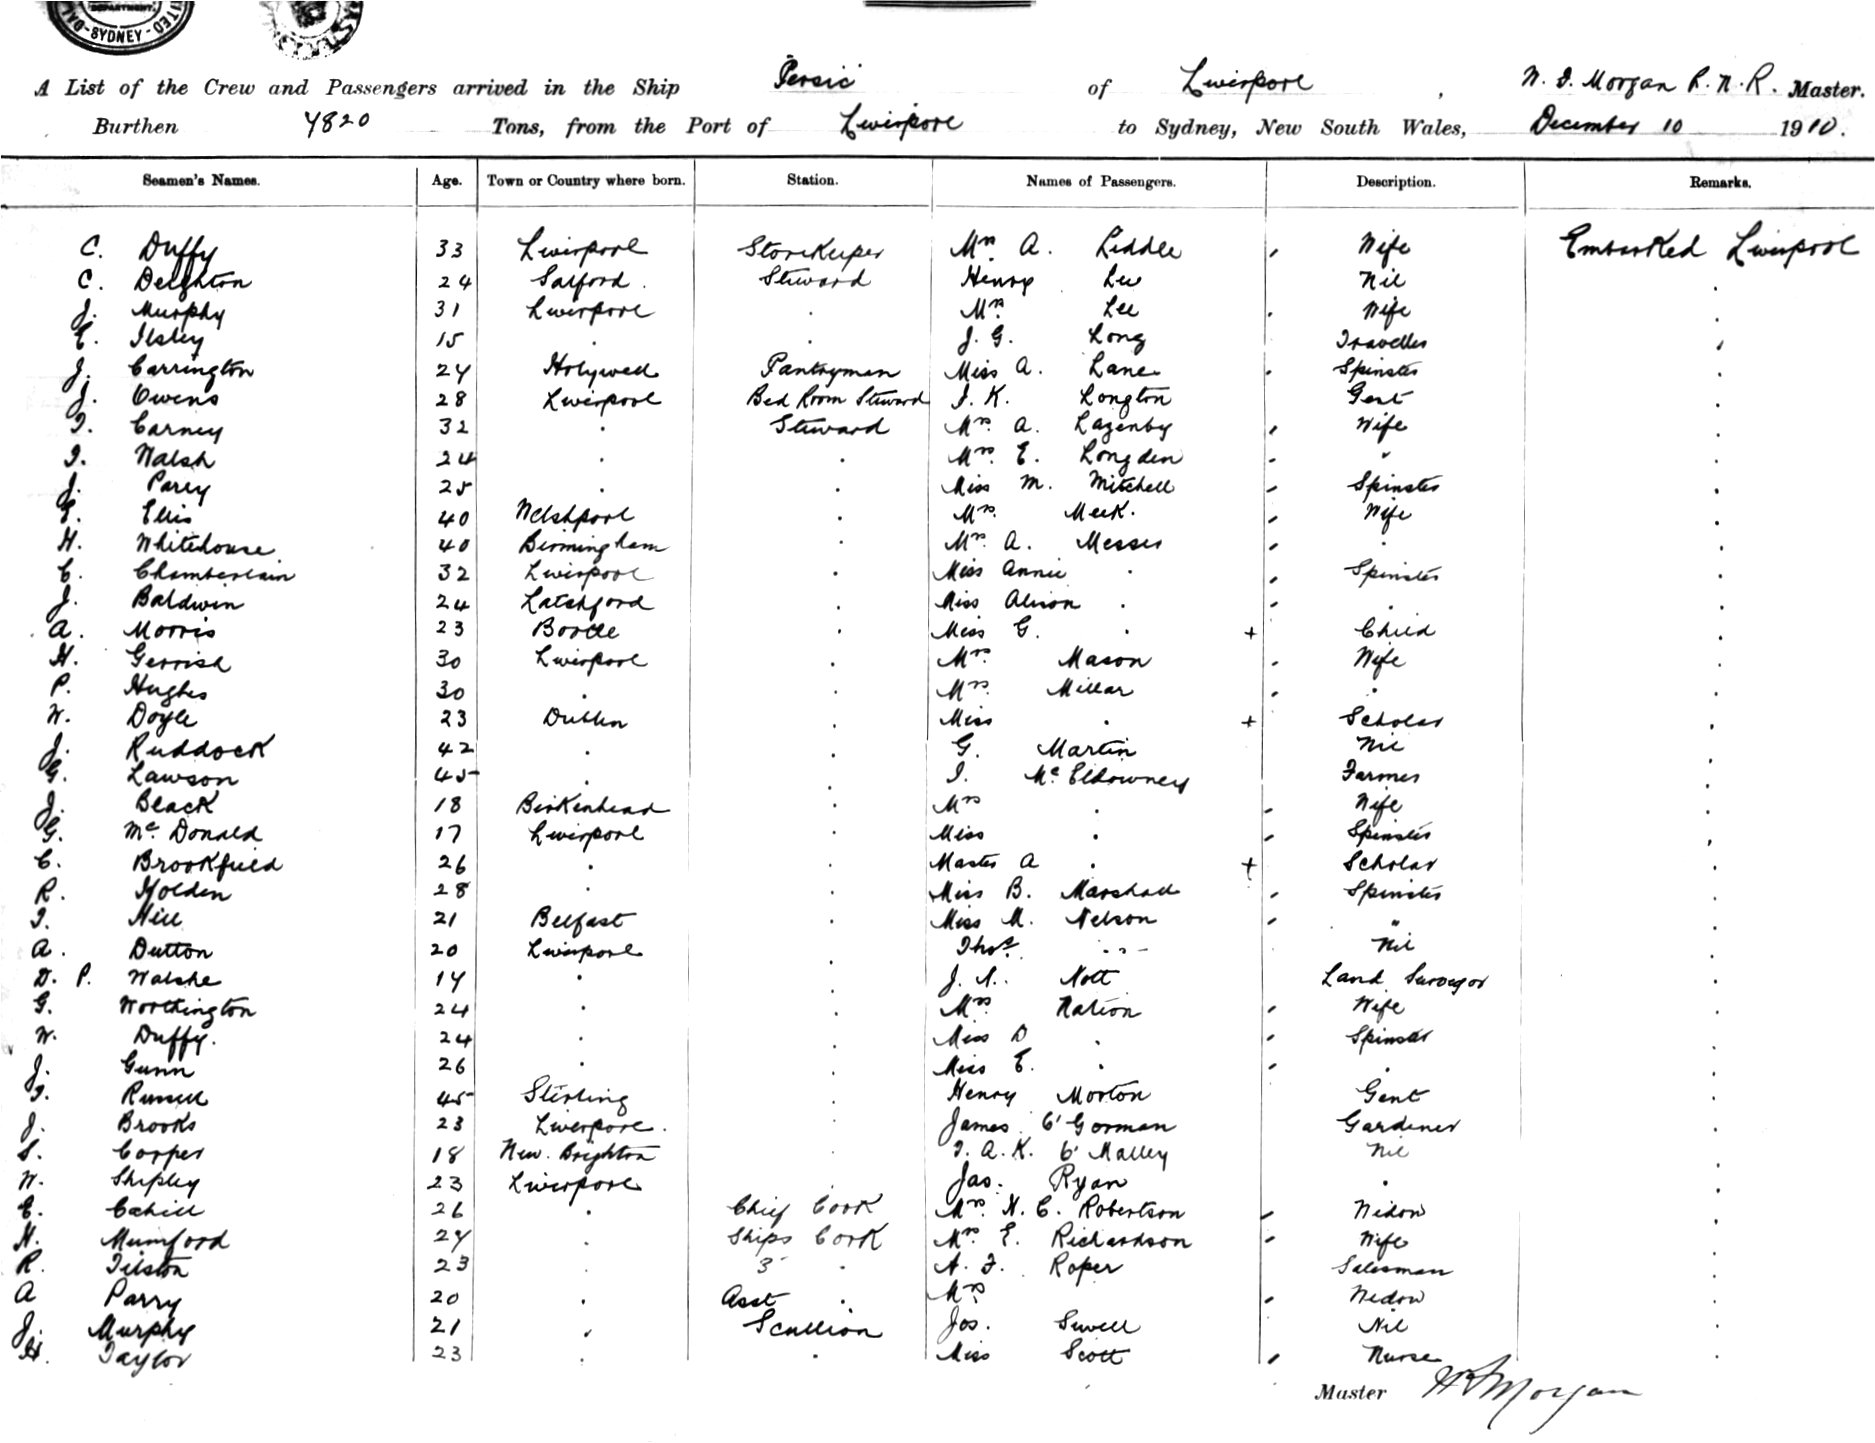 DEPARTMENT.
SYDNEY
A List of the Crew and Passengers arrived in the Ship Persic of Liverpool, W. F. Morgan R.N.R. Master.
Burthen 7820 Tons, from the Port of Liverpool to Sydney, New South Wales, December 10 1910.
Seamen's Names. Age. Town or Country where born. Station. Names of Passengers. Description. Remarks.
C. Duffy 33 Liverpool Storekeeper Mrs. A. Liddle Wife Embarked Liverpool
C. Deighton 24 Salford Steward Henry Lee Nil
J. Murphy 31 Liverpool Mrs. Lee Wife
E. Ilsley 15 J. G. Long Traveller
J. Carrington 24 Holywell Pantryman Miss A. Lane Spinster
J. Owens 28 Liverpool Bed Room Steward J. K. Longton Gent
T. Carney 32 Steward Mrs. A. Lazenby Wife
T. Walsh 24 Mrs. E. Longden "
J. Parry 25 Miss M. Mitchell Spinster
Ellis 40 Welshpool Mrs. Meek. Wife
H. Whitehouse 40 Birmingham Mrs. A. Messer
C. Chamberlain 32 Liverpool Miss Annie Spinster
J. Baldwin 24 Latchford Miss Alison
A. Morris 23 Bootle Miss G. + Child
H. Gerrish 30 Liverpool Mrs. Mason Wife
P. Hughes 30 Mrs. Millar
W. Doyle 23 Dublin Miss + Scholar
J. Ruddock 42 G. Martin Nil
G. Lawson 45 McEldowney Farmer
J. Black 18 Birkenhead Mrs Wife
G. McDonald 17 Liverpool Miss Spinster
C. Brookfield 26 Master A + Scholar
R. Holden 28 Miss B. Marshall Spinster
T. Hill 21 Belfast Miss M. Nelson "
A. Dutton 20 Liverpool Thos. Nil
D. P. Walshe 17 Nott Land Surveyor
G. Worthington 24 Mrs Nation Wife
W. Duffy. 24 Miss D Spinster
J. Gunn 26 Miss E.
T. Russell 45 Stirling Henry Morton Gent
J. Brooks 23 Liverpool. James O'Gorman Gardener
S. Cooper 18 New Brighton T. A. K. O'Malley Nil
W. Shipley 23 Liverpool Jas. Ryan
E. Cahill 26 Chief Cook Mrs. H. C. Robertson Widow
H. Mumford 24 Ships Cook Mrs. E. Richardson Wife
R. Tilston 23 3 A. F. Roper Salesman
A Parry 20 Asst Mrs. Widow
J. Murphy 21 Scullion Jos. Sewell Nil
H. Taylor 23 Miss Scott Nurse
Master W F Morgan